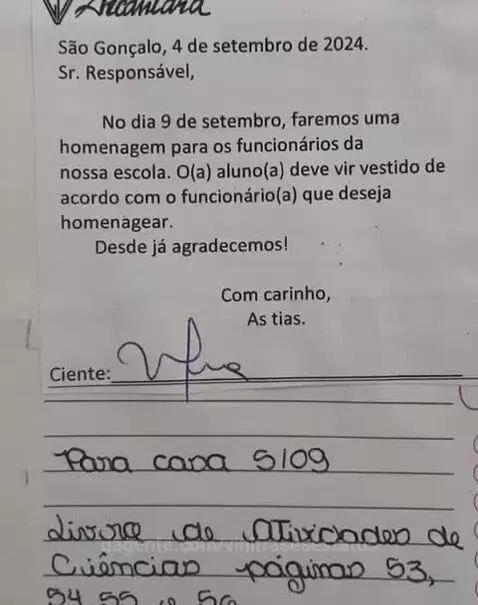 Alcântara
São Gonçalo, 4 de setembro de 2024.
Sr. Responsável,
No dia 9 de setembro, faremos uma
homenagem para os funcionários da
nossa escola. O(a) aluno(a) deve vir vestido de
acordo com o funcionário(a) que deseja
homenagear.
Desde já agradecemos!
Com carinho,
As tias.
Ciente:
Para casa 5/09
Livro de Atividades de
Ciências páginas 53,
54 55 e 56